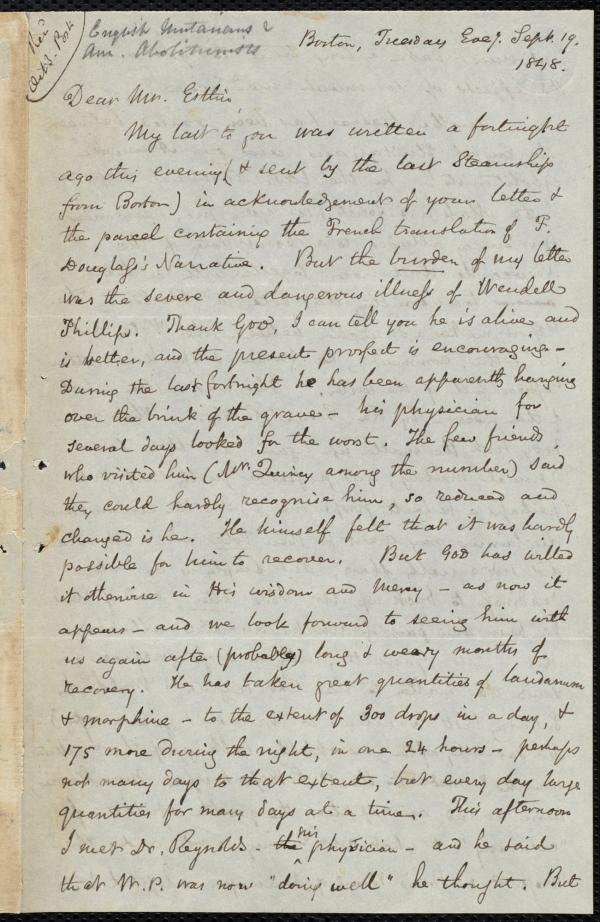 English Unitarians &
Am. Abolitionists
Boston, Tuesday Eveg. Sept. 19.
1848.
Dear Mr. Estlin,
My last to you was written a fortnight
ago this evening (& sent by the last Steamship
from Boston) in acknowledgement of your letter &
the parcel containing the French translation of F.
Douglass's Narrative. But the burden of my letter
was the severe and dangerous illness of Wendell
Phillips. Thank God, I can tell you he is alive and
is better, and the present prospect is encouraging -
During the last fortnight he has been apparently hanging
over the brink of the grave - his physician for
several days looked for the worst. The few friends
who visited him (Mr. Quincy among the number) said
they could hardly recognise him, so reduced and
changed is he. He himself felt that it was hardly
possible for him to recover. But God has willed
it otherwise in His wisdom and mercy - as now it
appears - and we look forward to seeing him with
us again after (probably) long & weary months of
recovery. He has taken great quantities of laudanum
& morphine - to the extent of 300 drops in a day, &
175 more during the night, in one 24 hours - perhaps
not many days to that extent, but every day large
quantities for many days at a time. This afternoon
I met Dr. Reynolds - the his physician - and he said
that W.P. was now "doing well" he thought. But